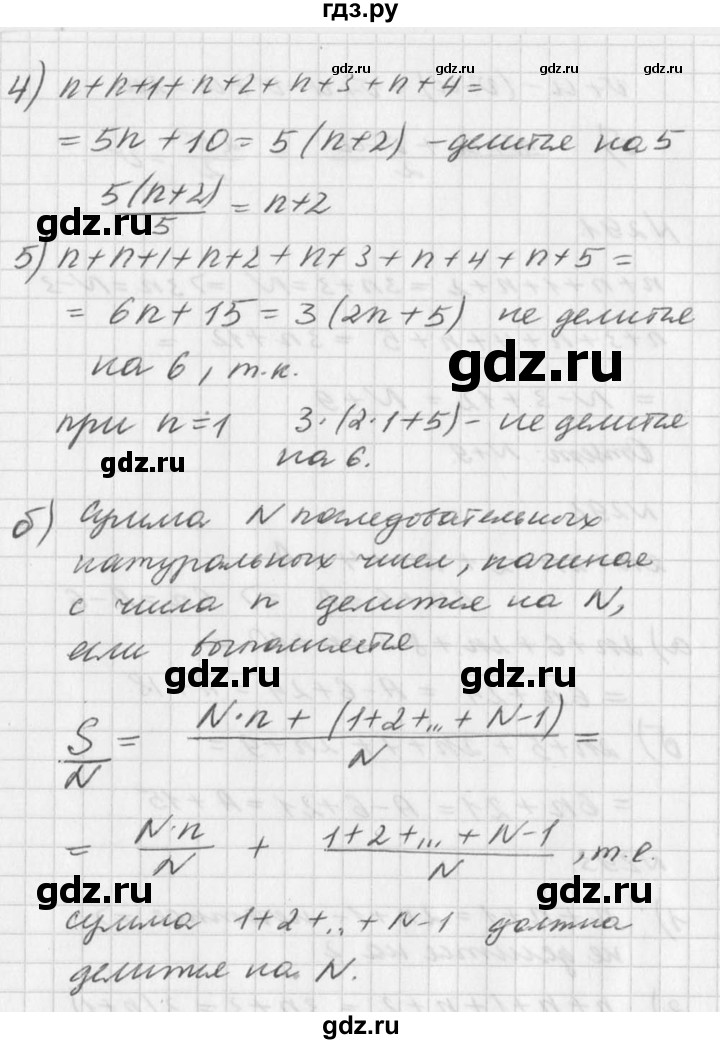 гдз.ру
4) n+n+1+n+2+n+3+n+4=
=5n+10=5(n+2) -делитья на 5
5(n+2)/5 = n+2
5) n+n+1+n+2+n+3+n+4+n+5=
= 6n+15=3(2n+5) не делитья
на 6, т.к.
при n=1 3·(2·1+5)- не делитья
на 6.
б) Сумма N последовательных
натуральных чисел, начиная
с числа n делится на N,
если выполняется
S/N = N·n + (1+2+...+N-1)/N =
= N·n/N + 1+2+...+N-1/N, т.е.
сумма 1+2+...+N-1 должна
делится на N.
gdz.ru
gdz.ru
gdz.ru
gdz.ru
gdz.ru
gdz.ru
gdz.ru
gdz.ru
gdz.ru
gdz.ru
gdz.ru
gdz.ru
gdz.ru
gdz.ru